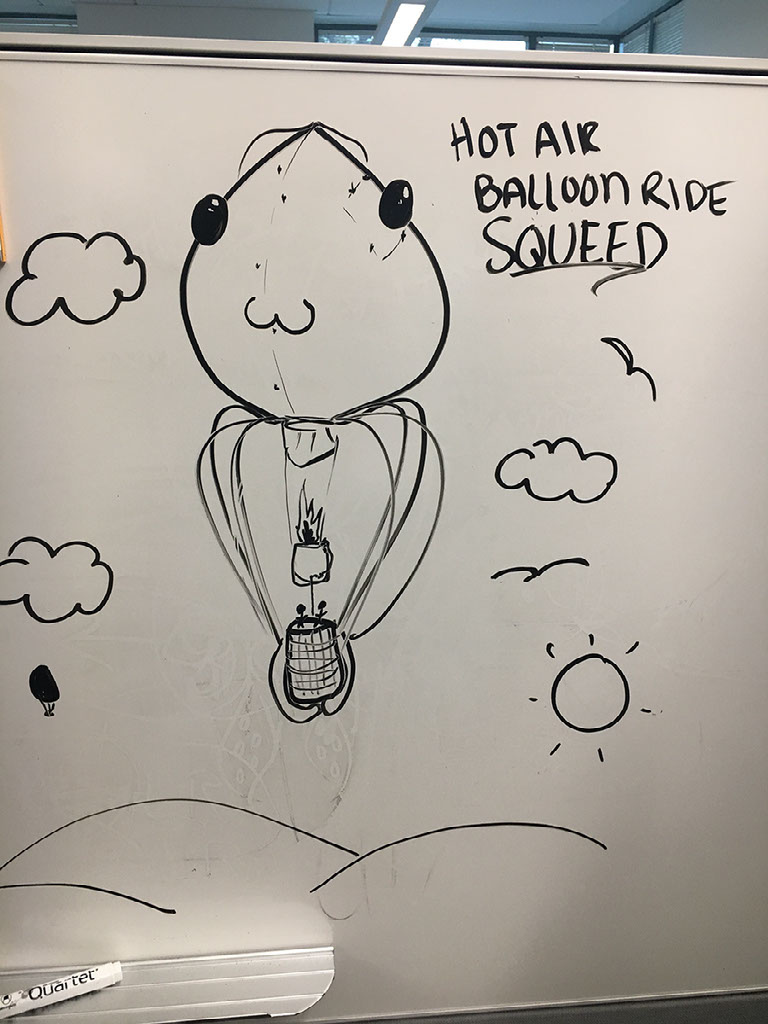 HOT AIR
BALLOON RIDE
SQUEED
Quartet